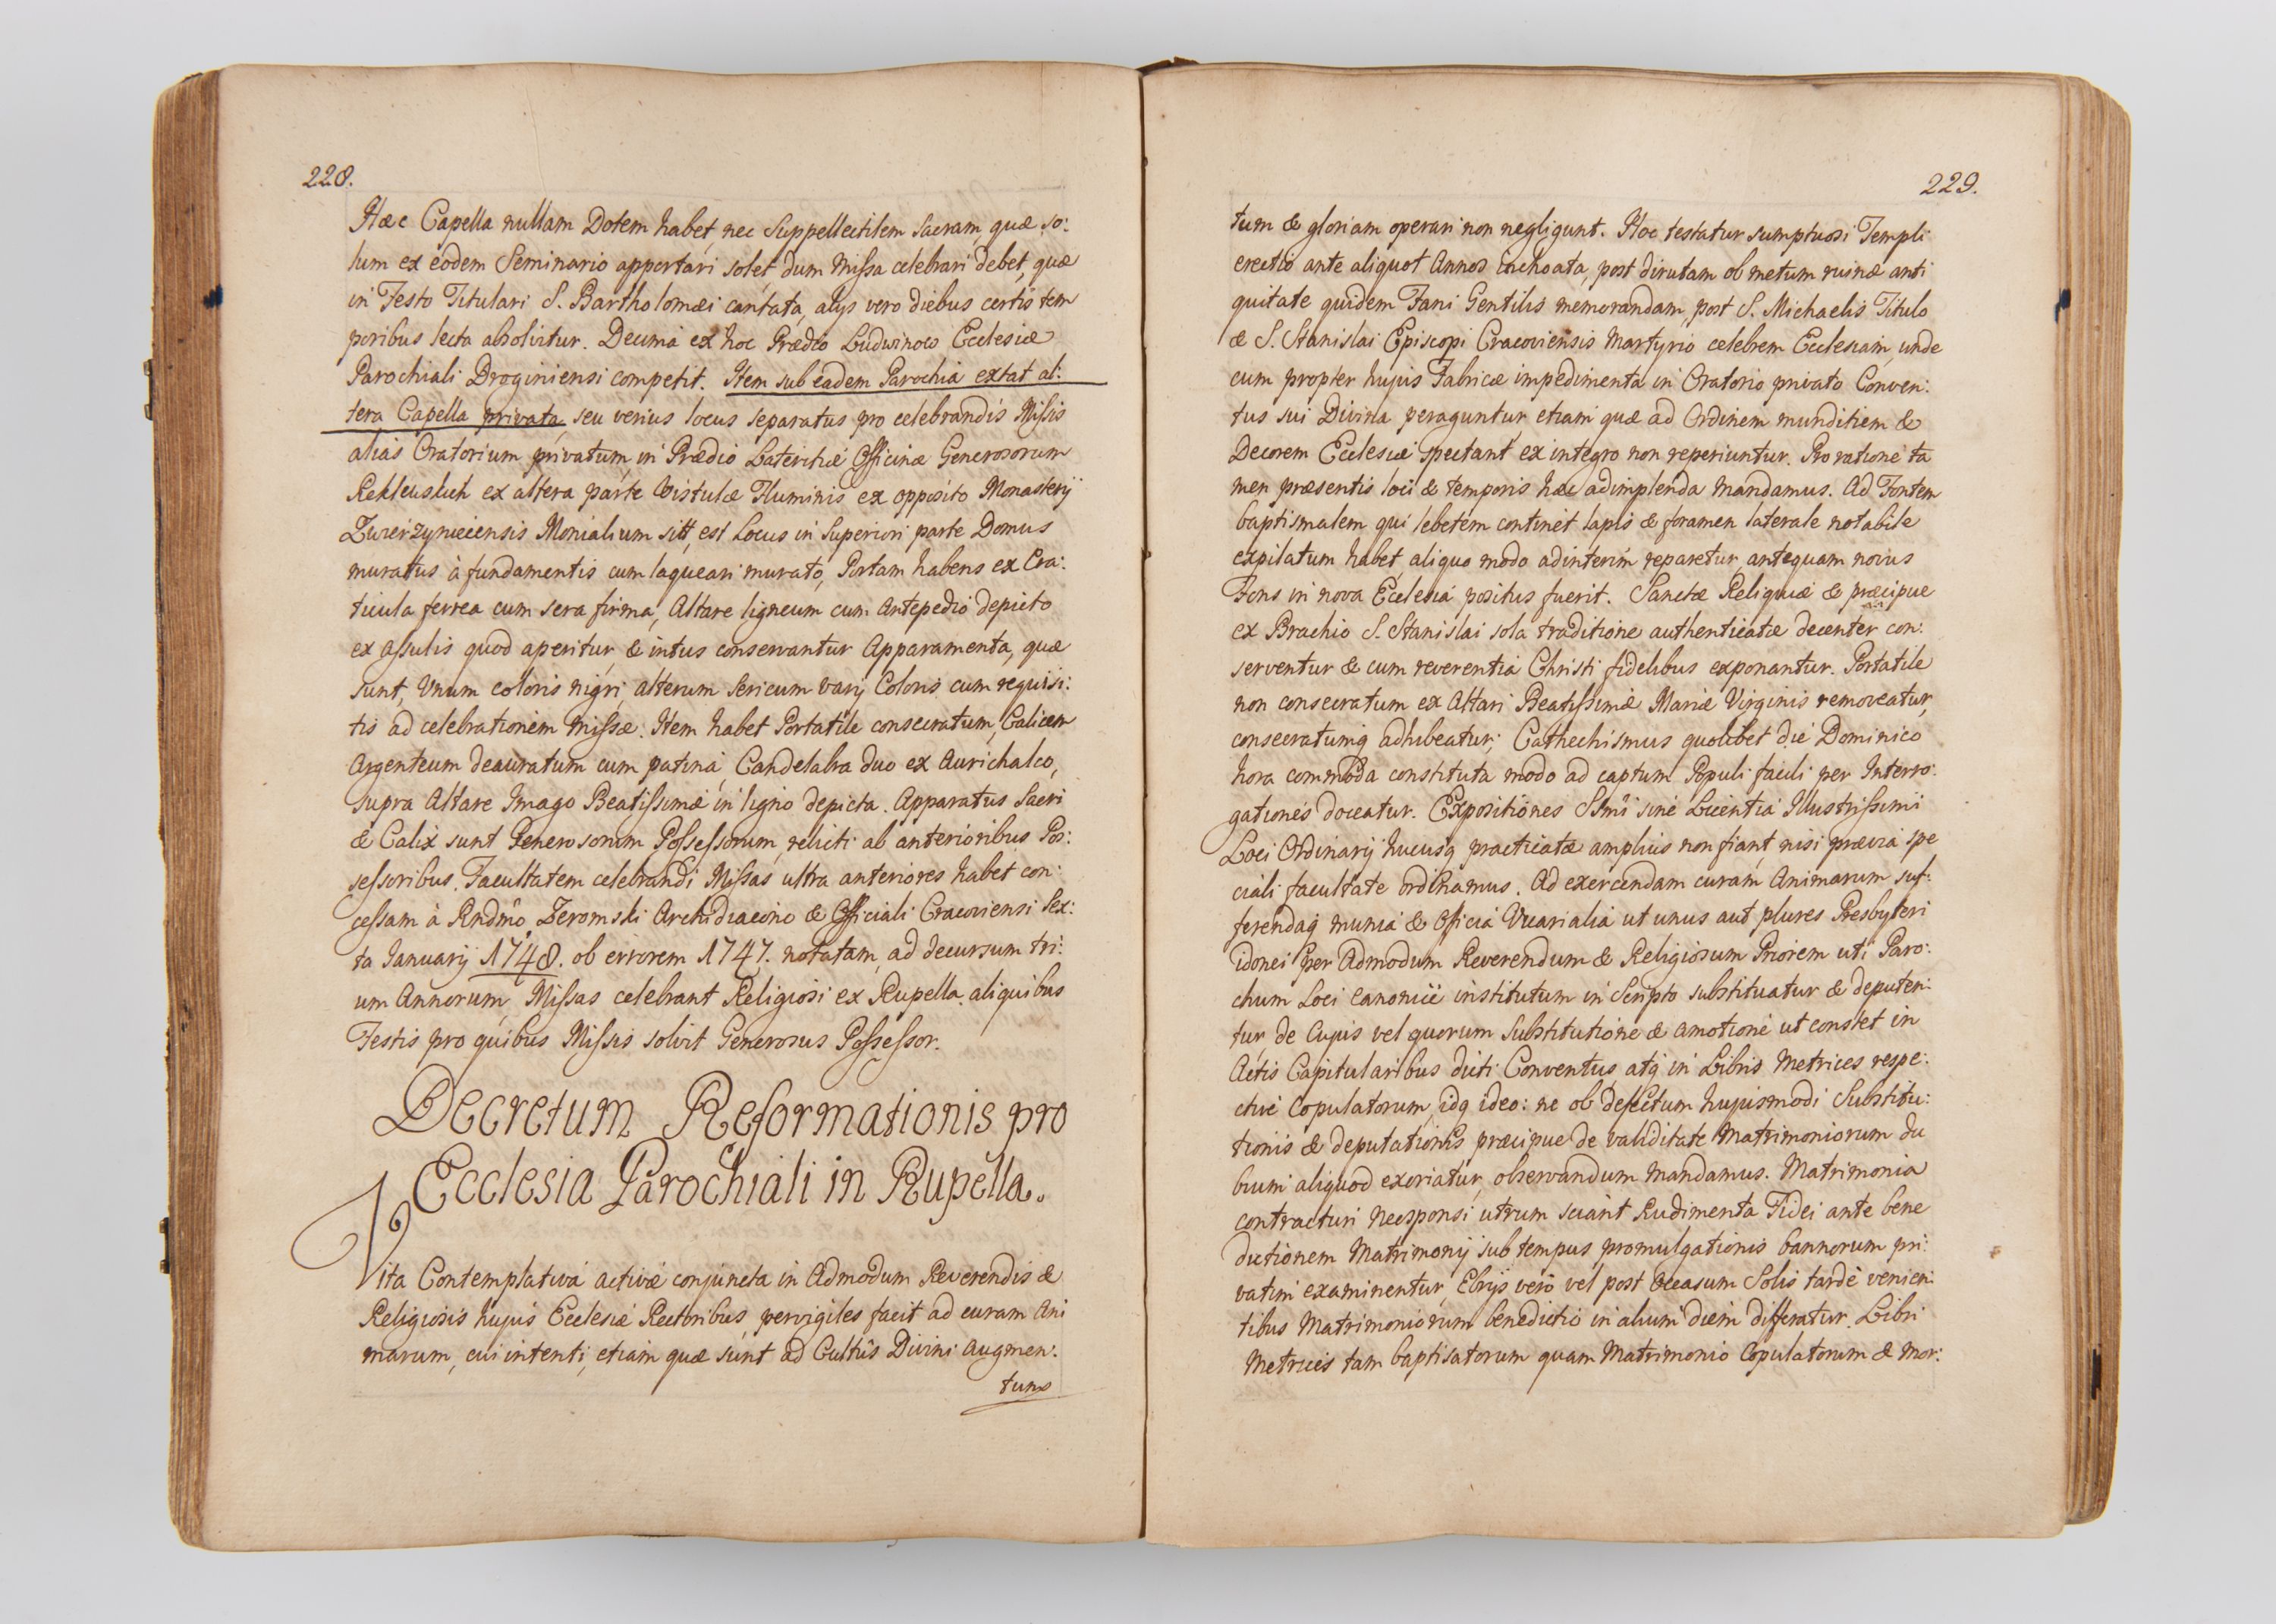 228.
Hæc Capella nullam Dotem habet, nec Suppellectilem Sacram, quæ so:
lum ex eodem Seminario apportari solet, dum Missa celebrari debet, quæ
in Festo Titulari S. Bartholomæi cantata, alijs vero diebus certis tem
poribus lecta absolvitur. Decima ex hoc Prædio Ludwinow Ecclesiæ
Parochiali Droginiensi competit. Item sub eadem Parochia extat al:
tera Capella privata, seu verius locus separatus pro celebrandis Missis
alias Oratorium privatum, in Prædio Lateritiæ Officinæ Generosorum
ex altera parte Vistulæ Fluminis ex opposito Monasterij
Zwierzyniecensis Monialium sitt, est Locus in Superiori parte Domus
muratus à fundamentis cum laqueari murato, Portam habens ex Cra:
ticula ferrea cum sera firma, Altare ligneum cum Antepedio depicto
ex assulis quod aperitur, & intus conservantur Apparamenta, quæ
sunt, Unum coloris nigri, alterum sericum varij Coloris cum requisi:
tis ad celebrationem Missæ. Item habet Portatile consecratum, Calicem
Argenteum deauratum cum patina, Candelabra duo ex Aurichalco,
supra Altare Imago Beatissimæ in ligno depicta. Apparatus Sacri
& Calix sunt Generosorum Possessorum, relicti ab anterioribus Pos:
sessoribus. Facultatem celebrandi Missas ultra anteriores habet con:
cessam à Rndmô Zeromski Archidiacono & Officiali Cracoviensi Sex:
ta Januarij 1748. ob errorem 1747. notatam, ad decursum tri:
um Annorum, Missas celebrant Religiosi ex Rupella aliquibus
Festis pro quibus Missis solvit Generosus Possessor.
Decretum Reformationis pro
Ecclesia Parochiali in Rupella.
Vita Contemplativa activæ conjuncta in Admodum Reverendis &
Religiosis hujus Ecclesiæ Rectoribus, pervigiles facit ad curam Ani
marum, cui intenti, etiam quæ sunt ad Cultûs Divini Augmen:
tum
229.
tum & gloriam operari non negligunt. Hoc testatur sumptuosi Templi
erectio ante aliquot Annos inchoata, post dirutam ob metum ruinæ anti
quitate quidem Fani Gentilis memorandam, post S. Michaelis Titulo
& S. Stanislai Episcopi Cracoviensis Martyrio celebrem Ecclesiam, unde
cum propter hujus Fabricæ impedimenta in Oratorio privato Conven:
tus sui Divina peraguntur etiam quæ ad Ordinem munditiem &
Decorem Ecclesiæ spectant ex integro non reperiuntur. Pro ratione ta
men præsentis loci & temporis hæc adimplenda Mandamus. Ad Fontem
baptismalem qui lebetem continet lapis & foramen laterale notabile
expilatum habet, aliquo modo adinterim reparetur, antequam novus
Fons in nova Ecclesia positus fuerit. Sanctæ Reliquiæ & præcipue
ex Brachio S. Stanislai sola traditione authenticatæ decenter con:
serventur & cum reverentia Christi fidelibus exponantur. Portatile
non consecratum ex Altari Beatissimæ Mariæ Virginis removeatur,
consecratumq adhibeatur; Cathechismus quolibet die Dominico
hora commoda constituta modo ad captum Populi facili per Interro:
gationes doceatur. Expositiones SSmi sine Licentia Illustrissimi
Loci Ordinarij hucusq practicatæ amplius non fiant, nisi prævia spe
ciali facultate ordinamus. Ad exercendam curam Animarum suf:
ferendaq munia & Officia Vicarialia ut unus aut plures Presbyteri
idonei Per Admodum Reverendum & Religiosum Priorem uti Paro:
chum Loci canonicè institutum in Scripto substituatur & deputen:
tur, de Cujus vel quorum Substitutione & amotione ut constet in
Actis Capitularibus dicti Conventus, atq in Libris Metrices respe:
ctivè Copulatorum, idq ideo: ne ob defectum hujusmodi Substitu:
tionis & deputationis præcipue de validitate Matrimoniorum du
bium aliquod exoriatur, observandum Mandamus. Matrimonia
contracturi Neosponsi utrum sciant Rudimenta Fidei ante bene
dictionem Matrimonij sub tempus promulgationis bannorum pri:
vatim examinentur, Ebrijs vero vel post Occasum Solis tardè venien:
tibus Matrimoniorum benedictio in alium diem differatur. Libri
Metrices tam baptisatorum quam Matrimonio Copulatorum & Mor: